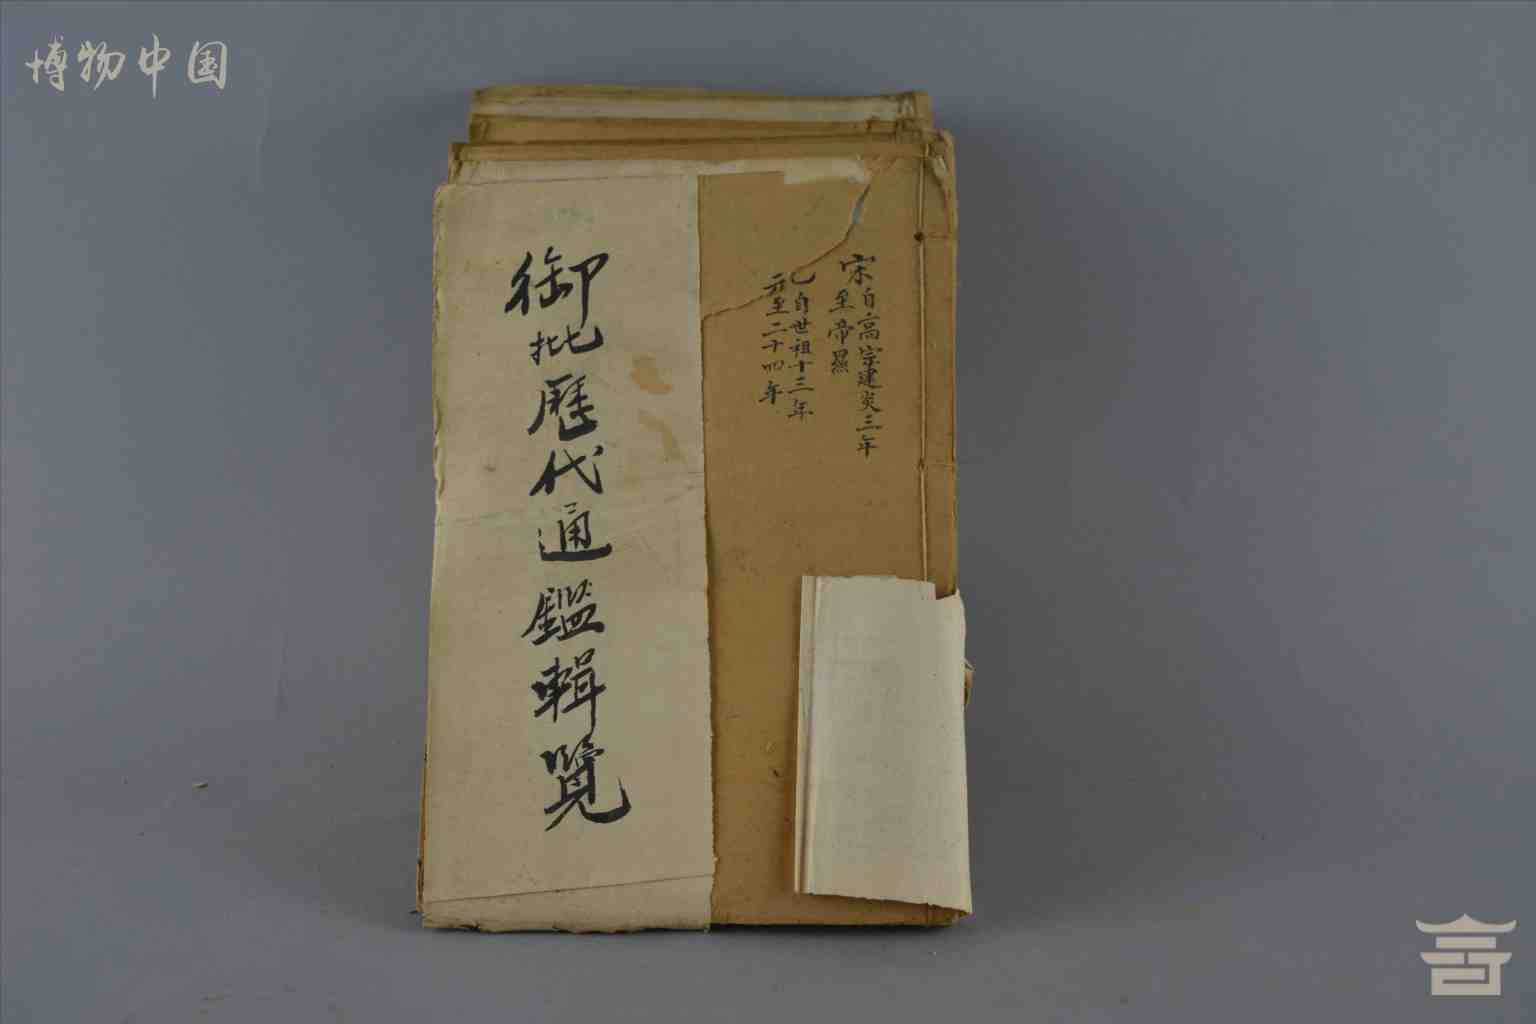 博物中国
宋自高宗建炎三年
至帝㬎
自世祖十三年
元至二十四年
御批歷代通鑑輯覽